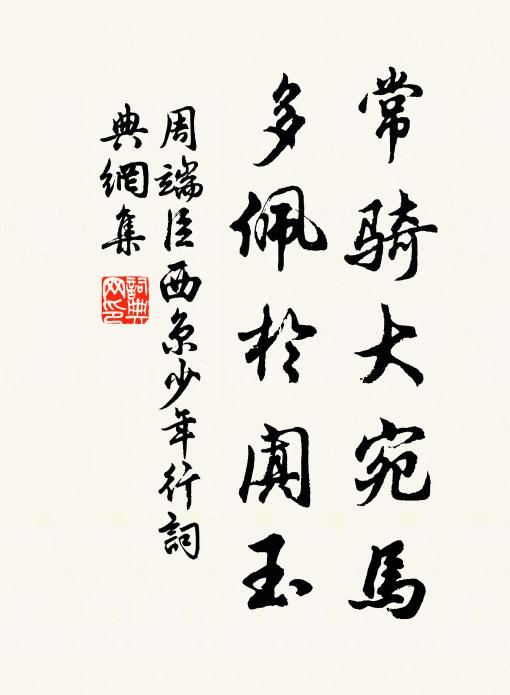 常骑大宛馬
多佩於闐玉
周端臣西京少年行詞
典網集
詞典
网印